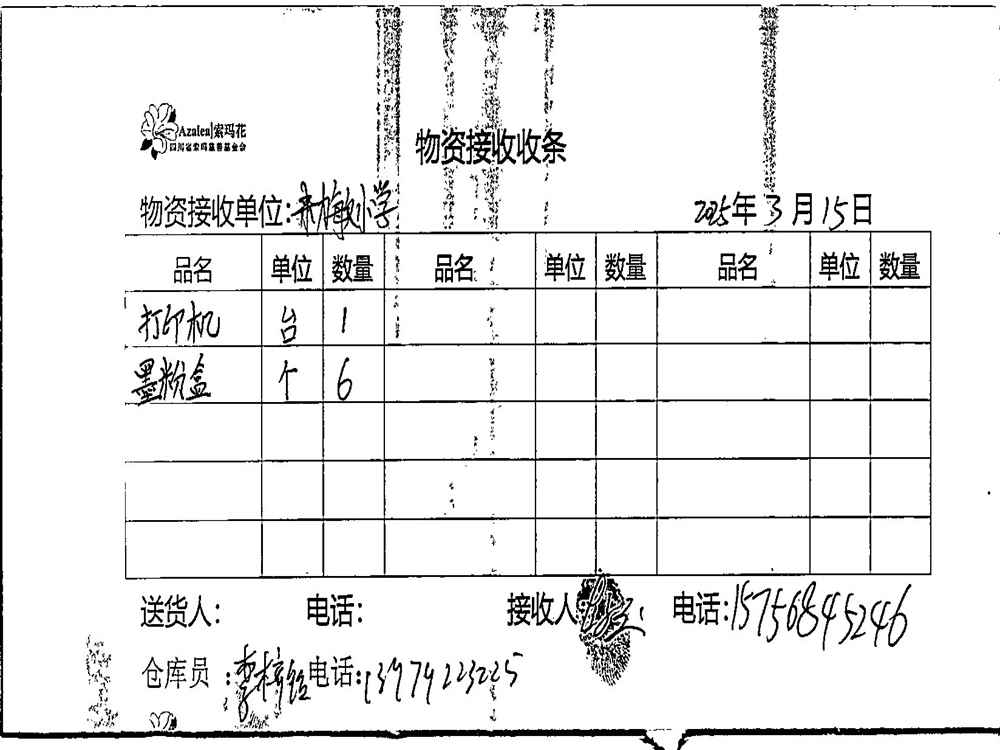 Azalea|索玛花
四川省索玛慈善基金会
物资接收收条
物资接收单位: 小学 2025年3月15日
品名 单位 数量 品名 单位 数量 品名 单位 数量
打印机 台 1
墨粉盒 个 6
送货人: 电话: 接收人: 电话:15756845246
仓库员: 李梓铭 电话:13979223225